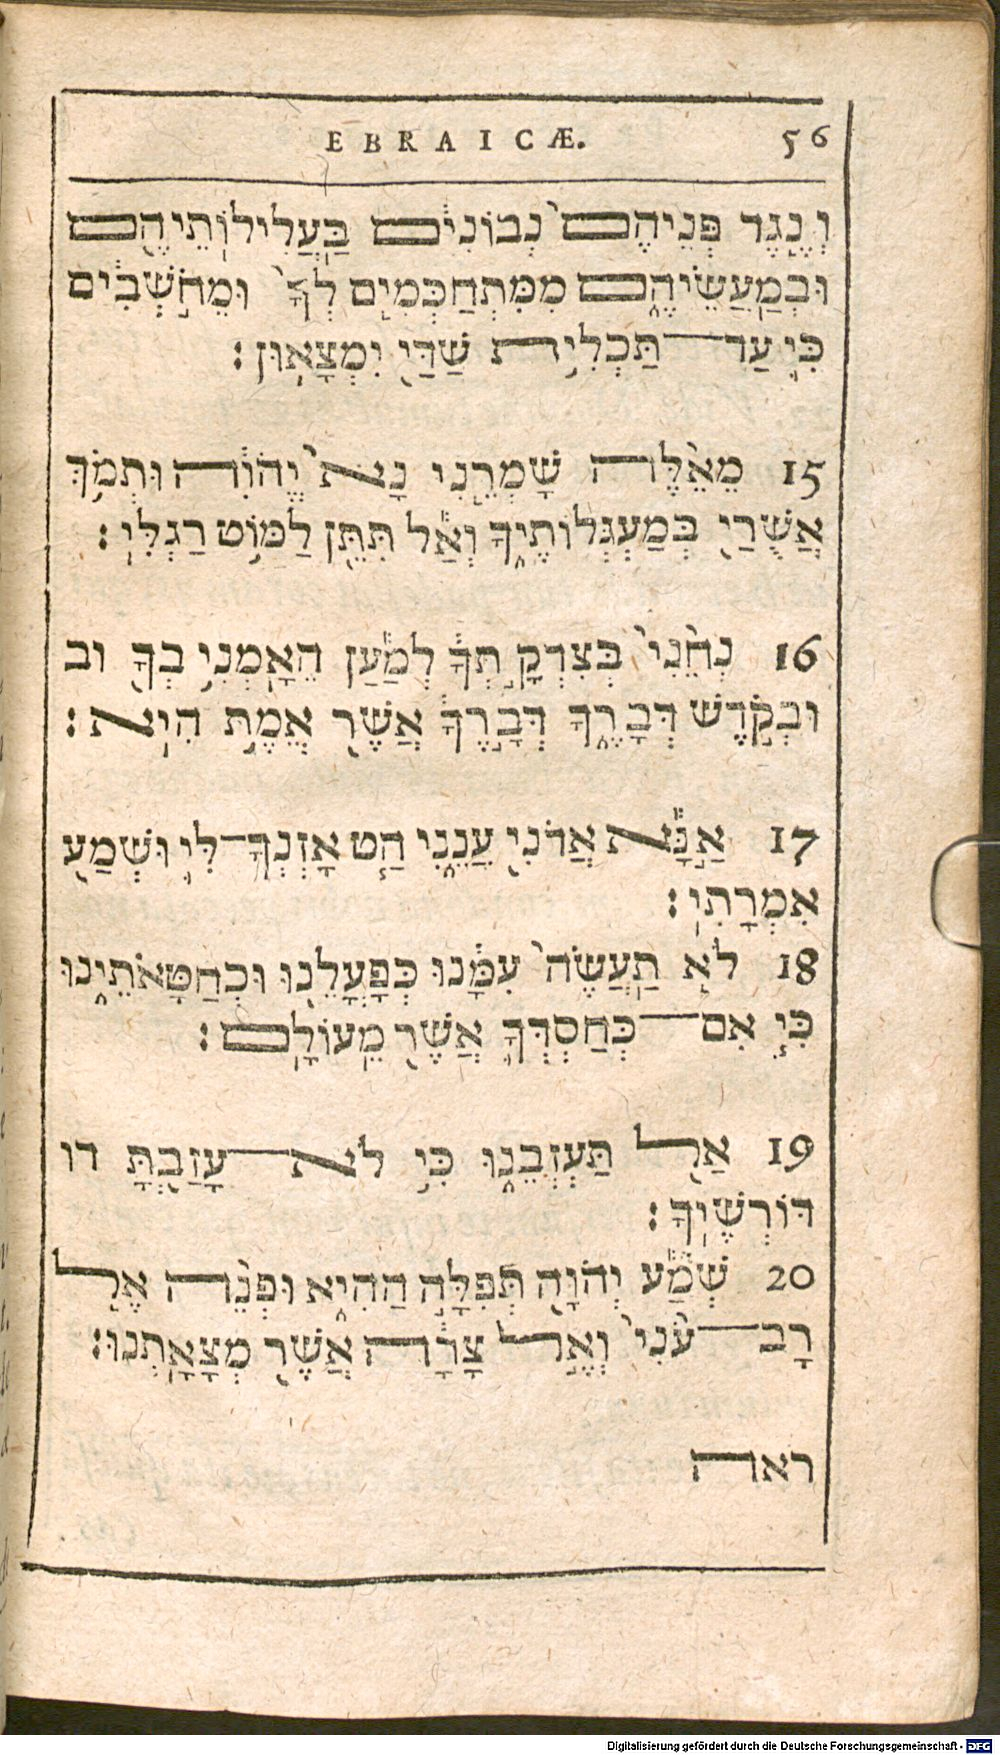 EBRAICÆ. 56
וְנֶ֣גֶד פְּנֵיהֶם֙ נְבוֹנִ֔ים בַּֽעֲלִילֽוֹתֵיהֶ֖ם
וּבְמַֽעֲשֵׂיהֶ֑ם מִמִּתְחַכְּמִ֤ים לְךָ֙ וּמֵחֹ֣שְׁבִ֔ים
כִּֽי עַד־תַּכְלִ֥ית שַׁדַּ֖י יִמְצָאֽוּן׃
15 מֵאֵ֨לֶּה שָׁמְרֵ֤נִי נָא֙ יֱהֹוִ֔ה וּתְמֹ֥ךְ
אֲשֻׁרַ֖י בְּמַעְגְּלוֹתֶ֑יךָ וְאַ֨ל תִּתֵּ֖ן לַמּ֥וֹט רַגְלִֽי׃
16 נְחֵ֨נִי֙ בְּצִדְקָ֣תְךָ֔ לְמַ֨עַן הֵאָֽמְנִ֥י בְךָ֖ וב
וּבְקֹ֣דֶשׁ דְּבָרֶ֑ךָ דְּבָרֶ֣ךָ֔ אֲשֶׁ֖ר אֱמֶ֥ת הִֽיא׃
17 אָ֣נָּ֗א אֲדֹנִ֖י עֲנֵ֑נִי הַ֤ט אָזְנְךָ־לִּֽי וּשְׁמַ֖ע
אִמְרָתִֽי׃
18 לֹ֣א תַֽעֲשֶׂה֙ עִמָּ֔נוּ כְּפָעֳלֵ֖נוּ וּכְחַטָּאתֵ֑ינוּ
כִּ֥י אִם־כְּחַסְדְּךָ֖ אֲשֶׁ֖ר מֵֽעוֹלָֽם׃
19 אַ֖ל תַּעְזְבֵ֑נוּ כִּ֥י לֹא־עָזַ֖בְתָּ דו
דּוֹרְשֶֽׁיךָ׃
20 שְׁמַ֗ע יְהֹוָ֤ה תְּפִלָּ֣ה הַהִ֑יא וּפְנֵ֨ה אֶ֖ל
רָב־עֹ֨נִי֙ וְאֶ֣ל צָרָ֔ה אֲשֶׁ֖ר מְצָאָֽתְנוּ׃
ראה
Digitalisierung gefördert durch die Deutsche Forschungsgemeinschaft - DFG